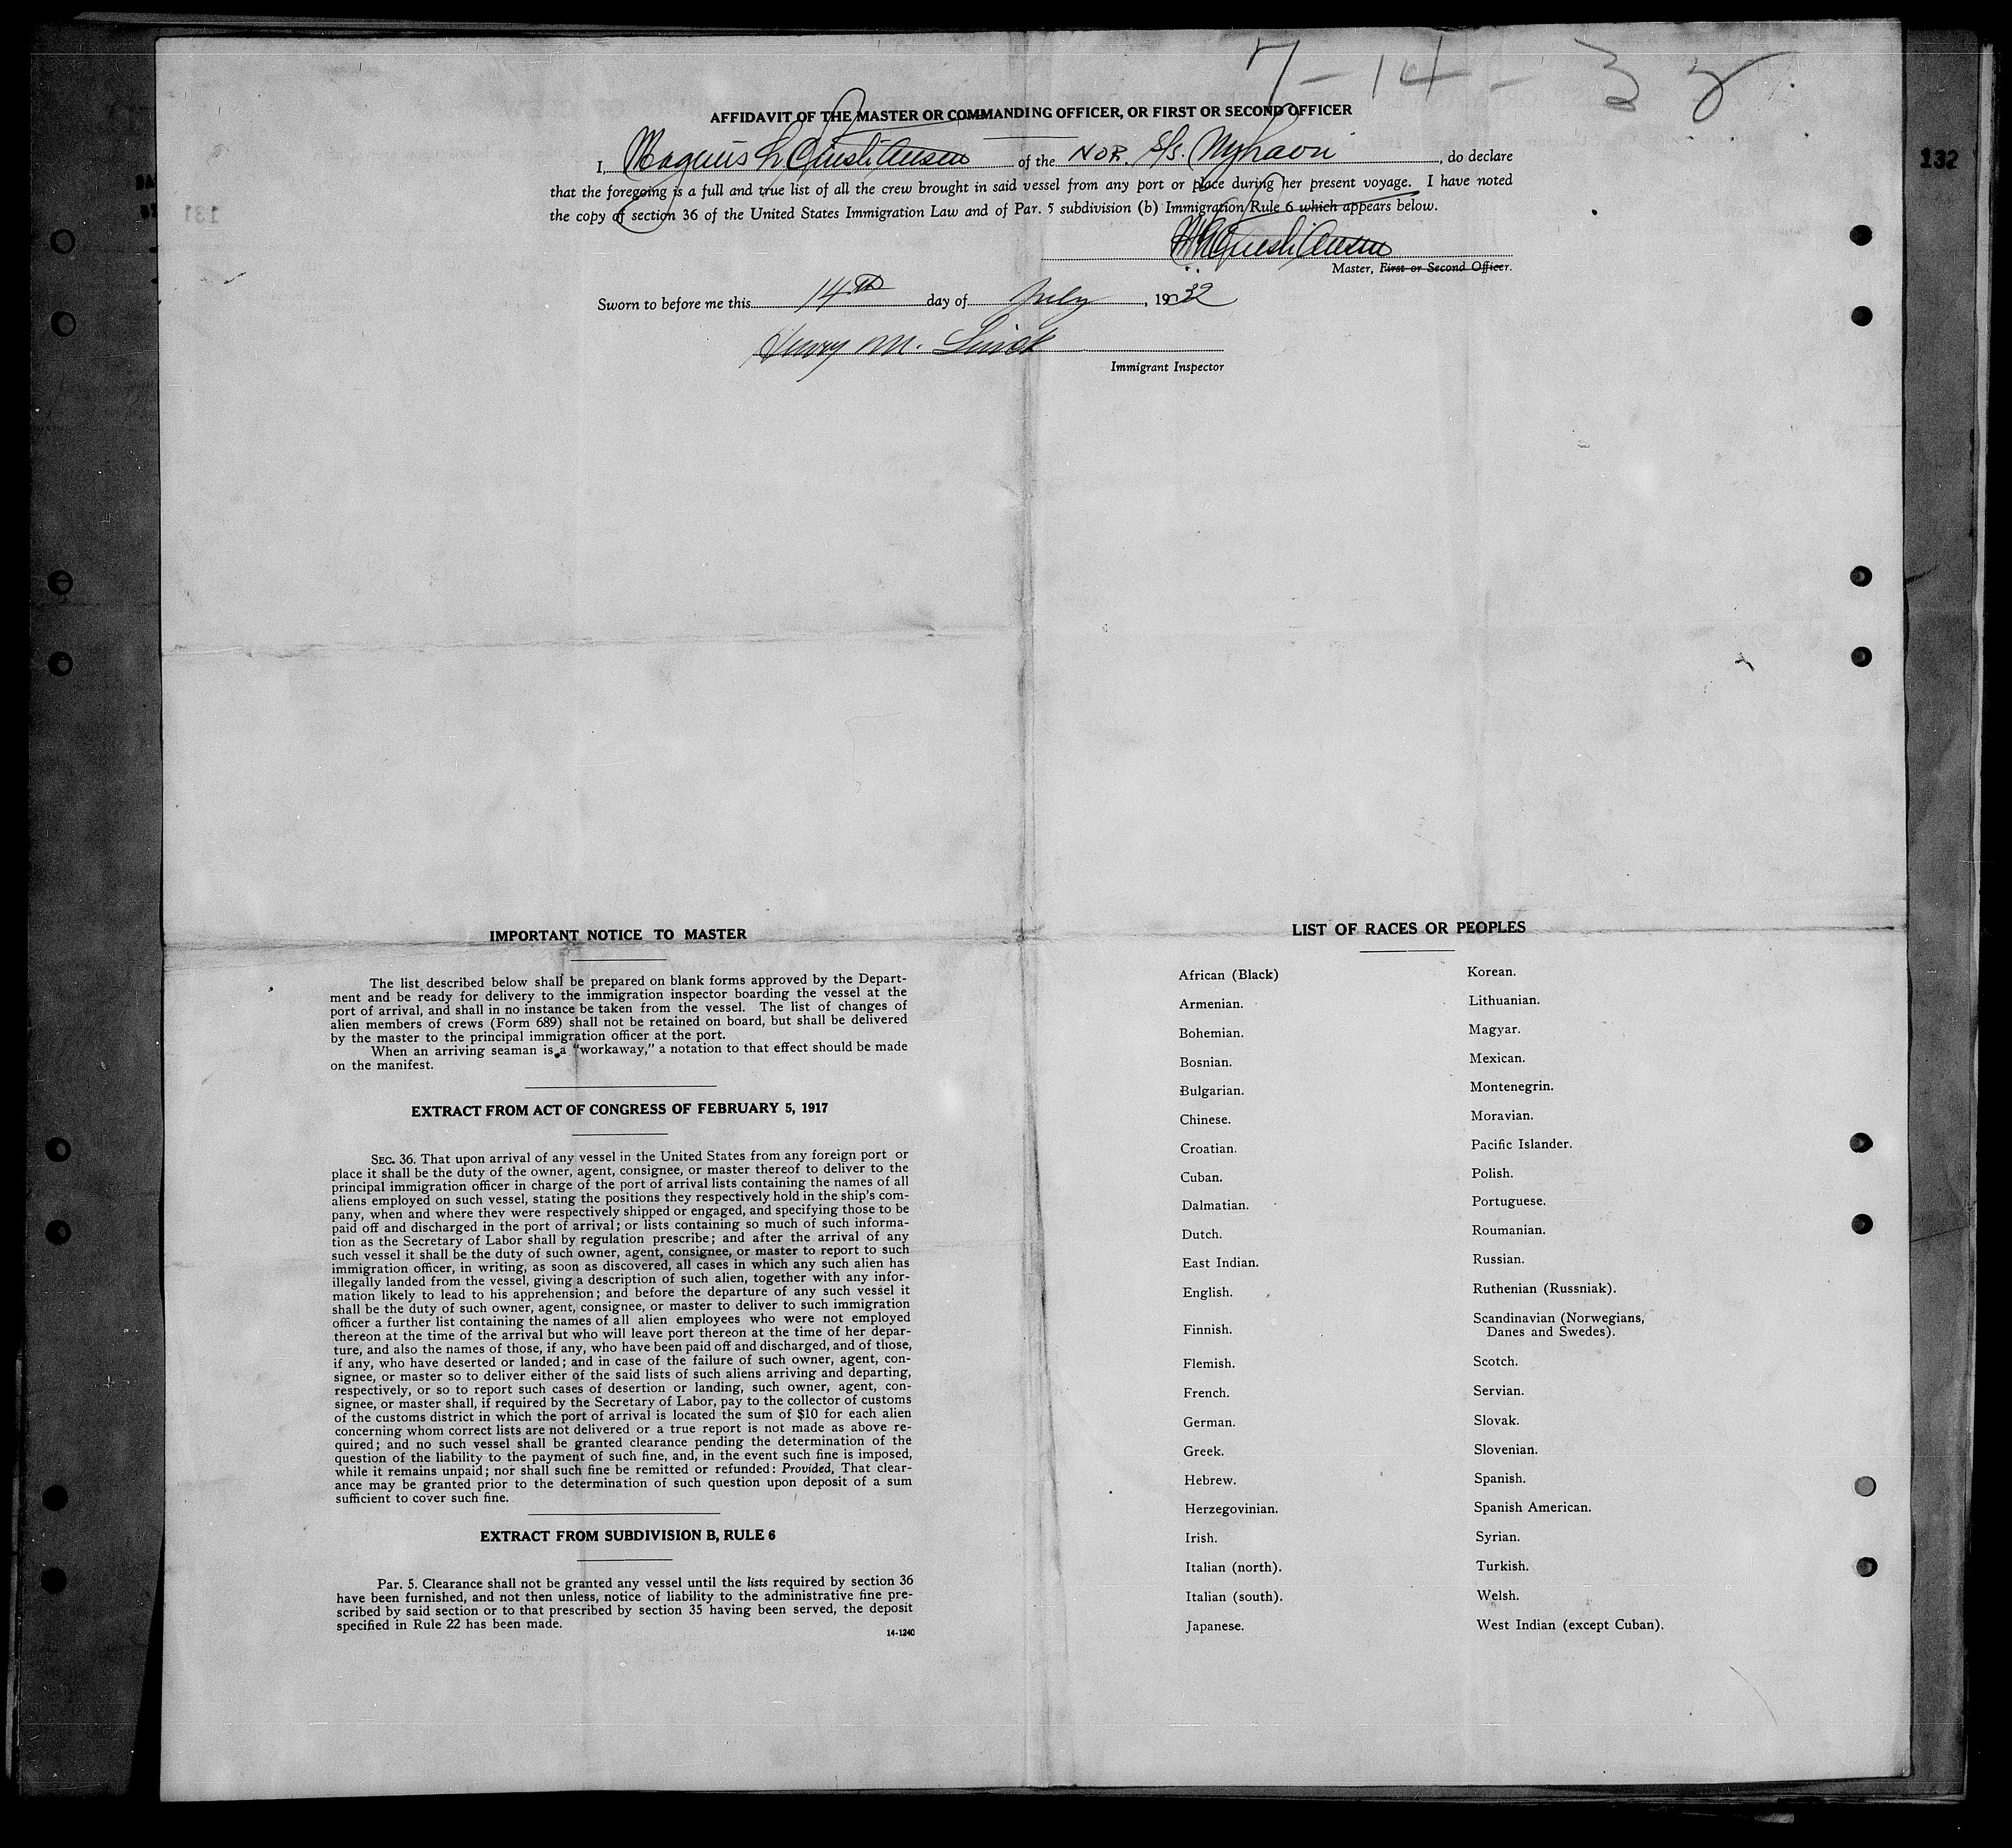 7-14-32
AFFIDAVIT OF THE MASTER OR COMMANDING OFFICER, OR FIRST OR SECOND OFFICER
I, Magnus L Christiansen of the NOR. S/S. Nyhavn, do declare
that the foregoing is a full and true list of all the crew brought in said vessel from any port or place during her present voyage. I have noted
the copy of section 36 of the United States Immigration Law and of Par. 5 subdivision (b) Immigration Rule 6 which appears below.
Christiansen
Master, First or Second Officer.
Sworn to before me this 14TH day of July, 1932
Henry M.
Immigrant Inspector
132
131
IMPORTANT NOTICE TO MASTER
The list described below shall be prepared on blank forms approved by the Depart-
ment and be ready for delivery to the immigration inspector boarding the vessel at the
port of arrival, and shall in no instance be taken from the vessel. The list of changes of
alien members of crews (Form 689) shall not be retained on board, but shall be delivered
by the master to the principal immigration officer at the port.
When an arriving seaman is a "workaway," a notation to that effect should be made
on the manifest.
EXTRACT FROM ACT OF CONGRESS OF FEBRUARY 5, 1917
SEC. 36. That upon arrival of any vessel in the United States from any foreign port or
place it shall be the duty of the owner, agent, consignee, or master thereof to deliver to the
principal immigration officer in charge of the port of arrival lists containing the names of all
aliens employed on such vessel, stating the positions they respectively hold in the ship's com-
pany, when and where they were respectively shipped or engaged, and specifying those to be
paid off and discharged in the port of arrival; or lists containing so much of such informa-
tion as the Secretary of Labor shall by regulation prescribe; and after the arrival of any
such vessel it shall be the duty of such owner, agent, consignee, or master to report to such
immigration officer, in writing, as soon as discovered, all cases in which any such alien has
illegally landed from the vessel, giving a description of such alien, together with any infor-
mation likely to lead to his apprehension; and before the departure of any such vessel it
shall be the duty of such owner, agent, consignee, or master to deliver to such immigration
officer a further list containing the names of all alien employees who were not employed
thereon at the time of the arrival but who will leave port thereon at the time of her depar-
ture, and also the names of those, if any, who have been paid off and discharged, and of those,
if any, who have deserted or landed; and in case of the failure of such owner, agent, con-
signee, or master so to deliver either of the said lists of such aliens arriving and departing,
respectively, or so to report such cases of desertion or landing, such owner, agent, con-
signee, or master shall, if required by the Secretary of Labor, pay to the collector of customs
of the customs district in which the port of arrival is located the sum of $10 for each alien
concerning whom correct lists are not delivered or a true report is not made as above re-
quired; and no such vessel shall be granted clearance pending the determination of the
question of the liability to the payment of such fine, and, in the event such fine is imposed,
while it remains unpaid; nor shall such fine be remitted or refunded: Provided, That clear-
ance may be granted prior to the determination of such question upon deposit of a sum
sufficient to cover such fine.
EXTRACT FROM SUBDIVISION B, RULE 6
Par. 5. Clearance shall not be granted any vessel until the lists required by section 36
have been furnished, and not then unless, notice of liability to the administrative fine pre-
scribed by said section or to that prescribed by section 35 having been served, the deposit
specified in Rule 22 has been made.
14-1240
LIST OF RACES OR PEOPLES
African (Black)
Armenian.
Bohemian.
Bosnian.
Bulgarian.
Chinese.
Croatian.
Cuban.
Dalmatian.
Dutch.
East Indian.
English.
Finnish.
Flemish.
French.
German.
Greek.
Hebrew.
Herzegovinian.
Irish.
Italian (north).
Italian (south).
Japanese.
Korean.
Lithuanian.
Magyar.
Mexican.
Montenegrin.
Moravian.
Pacific Islander.
Polish.
Portuguese.
Roumanian.
Russian.
Ruthenian (Russniak).
Scandinavian (Norwegians,
Danes and Swedes).
Scotch.
Servian.
Slovak.
Slovenian.
Spanish.
Spanish American.
Syrian.
Turkish.
Welsh.
West Indian (except Cuban).